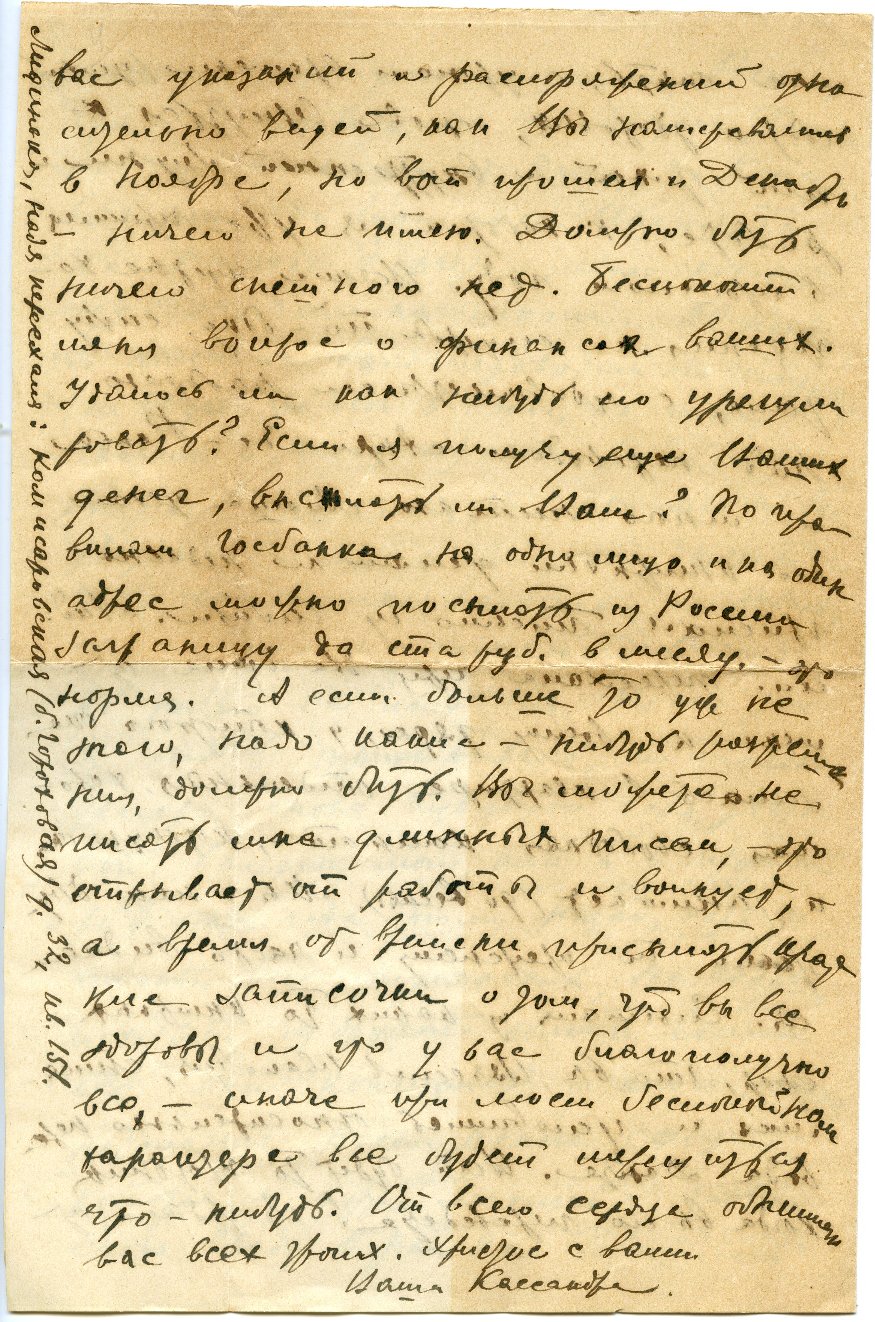 вас указаний и распоряжений отно
сительно вещей, как Вы намеревались
в Ноябре, но вот прошел и Декабрь
– ничего не имею. Должно быть
ничего спешного нет. Беспокоит
меня вопрос о финансах ваших.
Удалось ли как нибудь его урегули
ровать? Если я получу еще Ваших
денег, высылать ли Вам? По пра
вилам Госбанка на одно лицо и на один
адрес можно посылать из России
заграницу до ста руб. в месяц. – это
норма. А если больше то уж не
того, надо какие – нибудь разреше
ния, должно быть. Вы можете не
писать мне длинных писем, – это
отрывает от работы и волнует,
а время от времени присылать крат
кие записочки о том, что вы все
здоровы и что у вас благополучно
все, – иначе при моем беспокойном
характере все будет мерещиться
что – нибудь. От всего сердца обнимаю
вас всех троих. Христос с вами
Ваша Кассандра.
Лидинька, Надя переехала: Комисаровская (б. Гороховая) д. 32, кв. 157.